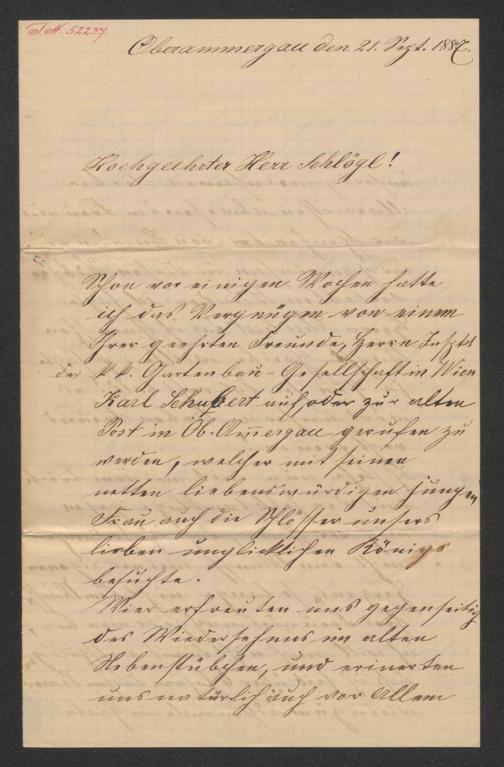 I.N. 52237
Oberammergau den 21. Sept. 1887.
Hochgeehrter Herr Schlögl!
Schon vor einigen Wochen hatte
ich das Vergnügen von einem
Ihrer geehrten Freunde, Herrn Inspkt
der k k. Gartenbau-Gesellschaft in Wien
Karl Schubert auf, oder zur alten
Post in Ob. Am̅ergau gerufen zu
werden, welcher mit seinen
netten liebenswürdigen jungen
Frau auch die Schlösser unsers
lieben unglücklichen Königs
besuchte.
Wier erfreuten uns gegenseitig
des Wiedersehens im alten
Nebenstübchen, und erinerten
uns natürlich auch vor Allem